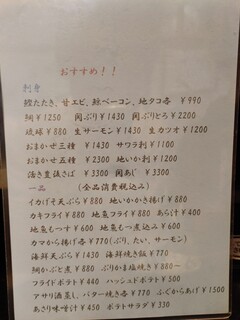 おすすめ!!
刺身
鰹たたき、甘エビ、鯨ベーコン、地タコ各 ¥990
鯛 ¥1250 関ぶり ¥1430 関ぶりとろ ¥2200
琉球 ¥880 生サーモン ¥1430 生カツオ ¥1200
おまかせ三種 ¥1430 サワラ刺 ¥1100
おまかせ五種 ¥2300 地いか刺 ¥1200
活き豊後さば ¥3300 関あじ ¥3300
一品 (全品消費税込み)
イカげそ天ぷら ¥880 地いかかき揚げ ¥880
カキフライ ¥880 地魚フライ ¥880 あら汁 ¥400
地魚もつす ¥600 地魚もつ煮込み ¥600
カマから揚げ各 ¥770(ぶり、たい、サーモン)
海鮮天ぷら ¥1430 海鮮焼き飯 ¥770
鯛かぶと煮 ¥880 ぶりかま塩焼き ¥880~
フライドポテト ¥440 ハッシュドポテト ¥500
アサリ酒蒸し、バター焼き各 ¥770 ふぐからあげ ¥1500
あさり味噌汁 ¥450 ポテトサラダ ¥330